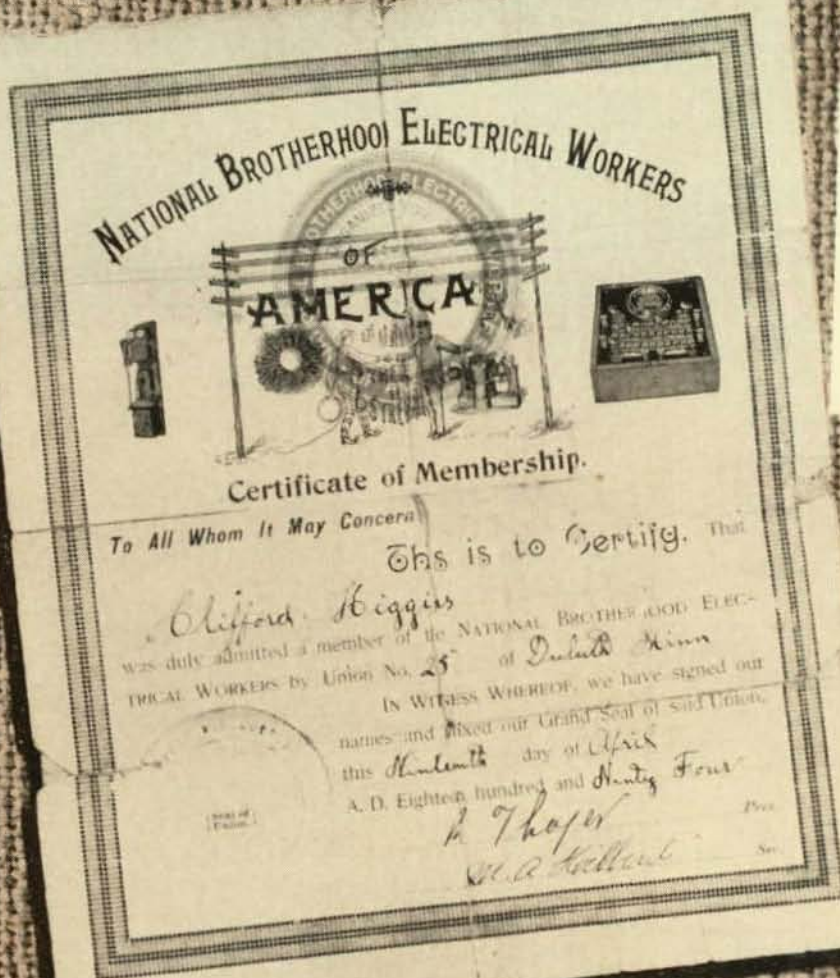 NATIONAL BROTHERHOOD ELECTRICAL WORKERS
BROTHERHOOD ELECTRICAL
OF
AMERICA
Certificate of Membership.
To All Whom It May Concern
This is to Certify. That
Clifford Higgins
was duly admitted a member of the NATIONAL BROTHERHOOD ELEC-
TRICAL WORKERS by Union No. 25 of Duluth Minn
IN WITNESS WHEREOF, we have signed our
names and affixed our Grand Seal of said Union,
this Nineteenth day of April
A. D. Eighteen hundred and Ninety Four
Thayer Pres.
Sec.
Seal of
Union.